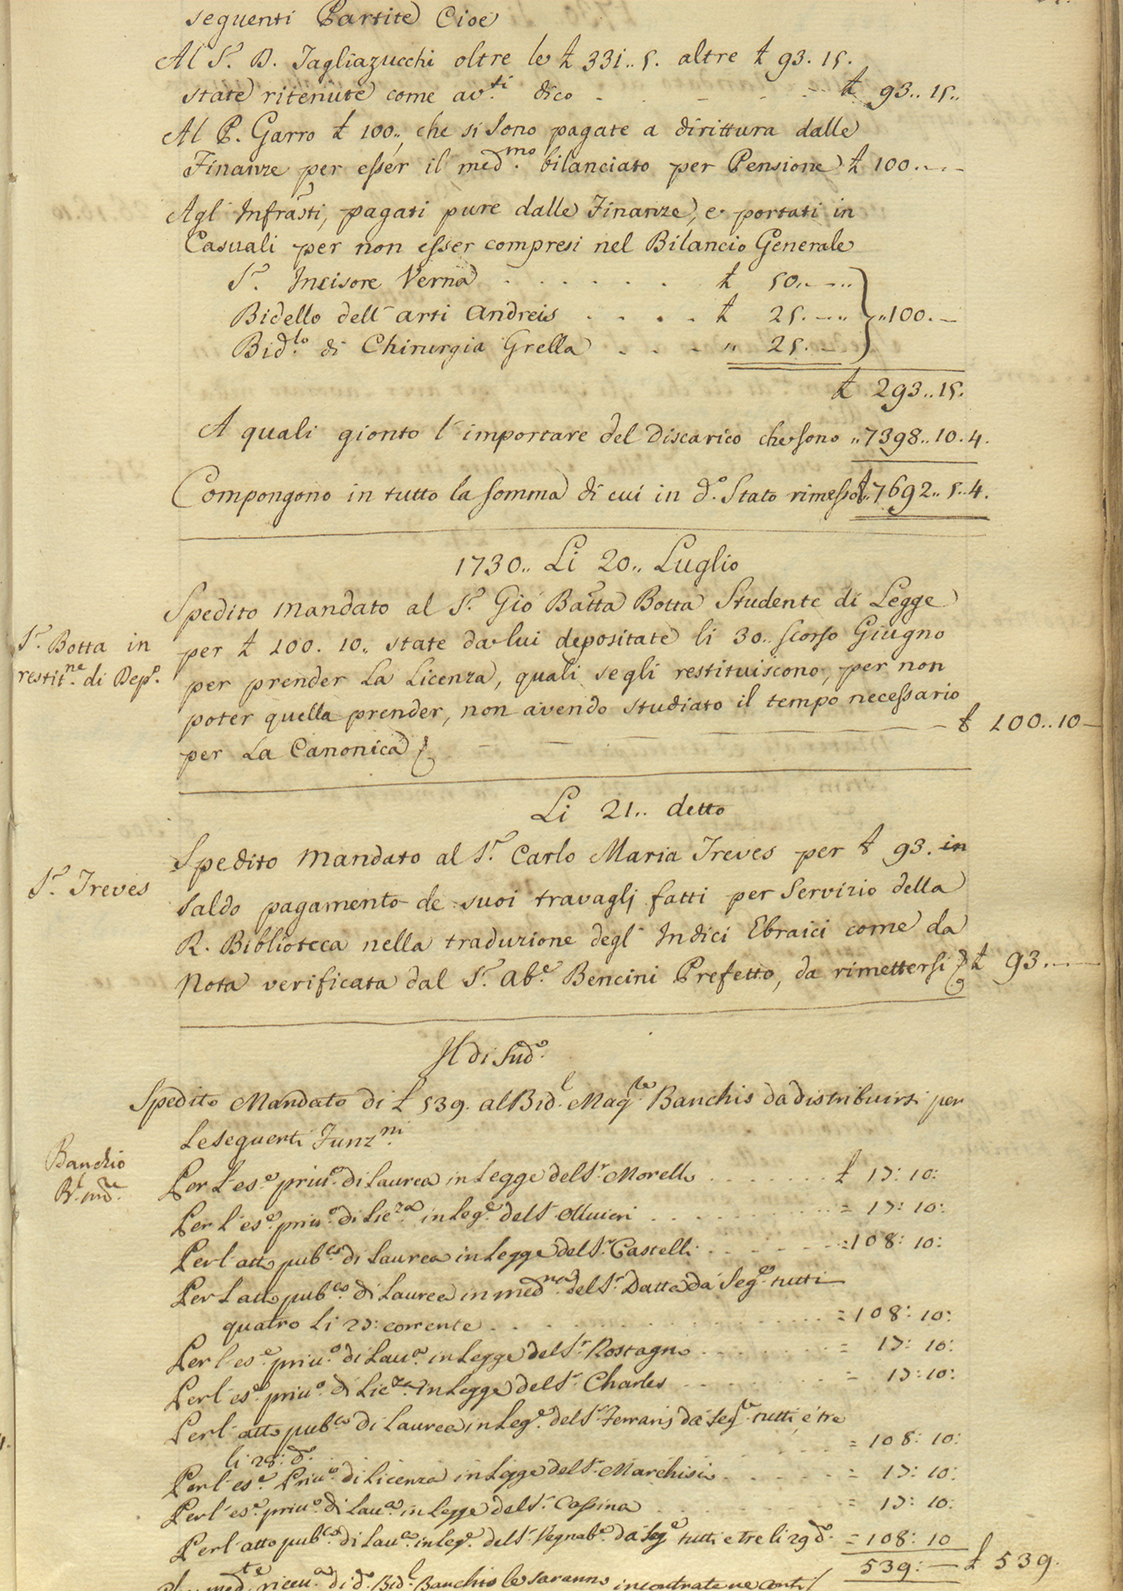 seguenti Partite Cioe
Al Sr. D. Tagliazucchi oltre le £ 331.. 5. altre £ 93. 15.
state ritenute come avti. dico - - - - - £ 93.. 15..
Al P. Garro £ 100.. che si sono pagate a dirittura dalle
Finanze per esser il medmo. bilanciato per Pensione £ 100.. - -
Agl' Infrasti, pagati pure dalle Finanze, e portati in
Casuali per non esser compresi nel Bilancio Generale
Sr. Incisore Verna . . . . . . £ 50.. - ..
Bidello dell'arti Andreis . . . . £ 25. - .. } ..100. -
Bidlo. di Chirurgia Grella . . . - " 25. -
£ 293.. 15.
A quali gionto l'importare del Discarico che sono ..7398.. 10. 4.
Compongono in tutto la somma di cui in do. Stato rimesso £ 7692.. 5.. 4.
1730.. Li 20.. Luglio
Spedito Mandato al Sr. Gio Batta Botta Studente di Legge
Sr. Botta in
restitne. di Depo.
per £ 100. 10.. state da lui depositate li 30.. scorso Giugno
per prender La Licenza, quali se gli restituiscono, per non
poter quella prender, non avendo studiato il tempo necessario
per La Canonica - - - - £ 100.. 10 -
Li 21.. detto
Sr. Treves
Spedito Mandato al Sr. Carlo Maria Treves per £ 93. in
saldo pagamento de suoi travaglj fatti per Servizio della
R. Biblioteca nella traduzione degl' Indici Ebraici come da
Nota verificata dal Sr. Abe. Bencini Prefetto, da rimettersi £ 93. -
Il di sudo.
Spedito Mandato di £ 539. al Bidl. Magle. Banchis da distribuirsi per
Le seguenti Funzni.
Banchio
Per L'ese. privo. di Laurea in Legge del Sr. Morello . . . . . . £ 17: 10:
Per L'ese. privo. di Licza. in Lege. del Sr. Olluieri . . . . . . = 17: 10:
Per L'atto pubco. di Laurea in Legge del Sr. Castelli . . . . =108: 10:
Per L'atto pubco. di Laurea in medna. del Sr. Datta da Sege. tutti
quatro li 27: corrente . . . . . . . . = 108: 10:
Per l'ese. privo. di Laua. in Legge del Sr. Rostagno . . . . . . = 17: 10:
Per l'ese. privo. di Licza. in Legge del Sr. Charles . . . . . . = 17: 10:
Per l'atto pubco. di Laurea in Lege. del Sr. Ferraris da sege. tutti e tre
li 28: do. . . = 108: 10:
Per l'ese. Privo. di Licenza in Legge del Sr. Marchisio . . . . . = 17: 10:
Per l'ese. privo. di Laua. in Legge del Sr. Cassina . . . . . = 17: 10:
Per l'atto pubco. di Laua. in Lege. del Sr. Vegnabe. da sege. tutti e tre li 29 do. = 108: 10
539: - £ 539.
di do. Bidl. Banchio le saranno incontrate ne conti